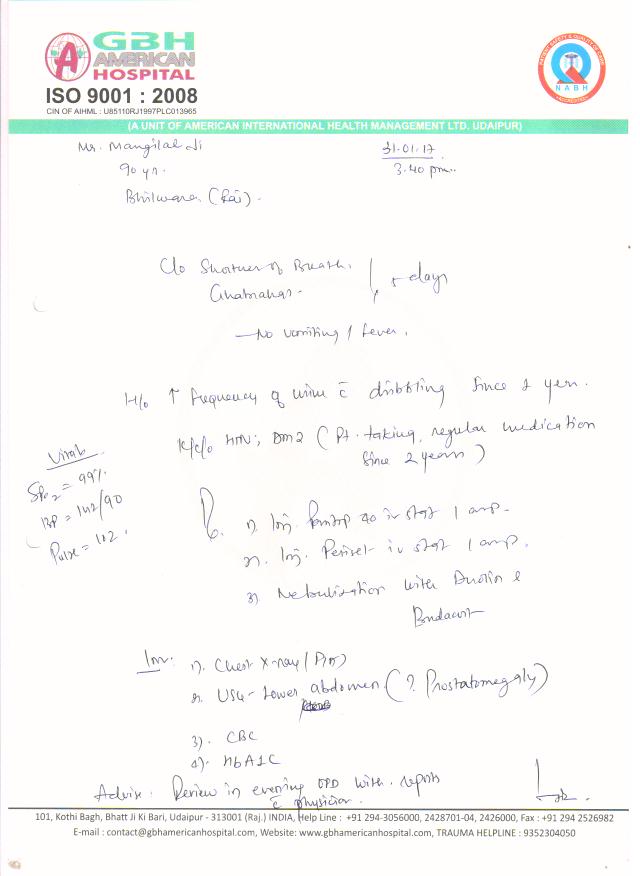 GBH
AMERICAN
HOSPITAL
ISO 9001 : 2008
CIN OF AIHML : U85110RJ1997PLC013965
PATIENT SAFETY & QUALITY OF CARE
NABH
ACCREDITED
(A UNIT OF AMERICAN INTERNATIONAL HEALTH MANAGEMENT LTD. UDAIPUR)
Mr. Mangilal Ji
31.01.17
90 yr.
3.40 pm.
Bhilwara (Raj).
C/o Shortness of Breath.
Ghabrahat.
5 days
— No vomiting / fever.
H/o ↑ frequency of urine c̄ dribbling since 2 year.
K/c/o HTN; DM2 (Pt. taking regular medication
since 2 years)
Vitals
SPO2 = 99%
BP = 142/90
Pulse = 102
1). Inj. Pantop 40 iv stat 1 amp.
2). Inj. Periset iv stat 1 amp.
3) Nebulization with Duolin &
Budacort
Inv: 1). Chest X-ray (PA)
2). USG - Lower abdomen (? Prostatomegaly)
3). CBC
4). HbA1C
Advise: Review in evening OPD with reports
c̄ physician.
101, Kothi Bagh, Bhatt Ji Ki Bari, Udaipur - 313001 (Raj.) INDIA, Help Line : +91 294-3056000, 2428701-04, 2426000, Fax : +91 294 2526982
E-mail : contact@gbhamericanhospital.com, Website: www.gbhamericanhospital.com, TRAUMA HELPLINE : 9352304050